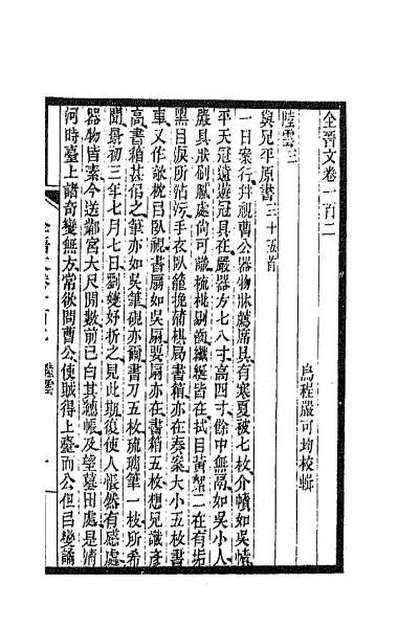 全晉文卷一百二
烏程嚴可均校輯
陸雲三
與兄平原書三十五首
一日案行幷視曹公器物牀薦席具有寒夏被七枚介幘如吳幘
平天冠遠遊冠具在嚴器方七八寸高四寸餘中無鬲如吳小人
嚴具狀刷膩處尚可識梳枇剔齒纖綖皆在拭目黃絮二在有垢
黑目淚所沾污手衣臥籠挽蒲棋局書箱亦在奏案大小五枚書
車又作欹枕㠯臥視書扇如吳扇要扇亦在書箱五枚想兄識彥
高書箱甚似之筆亦如吳筆硯亦爾書刀五枚琉璃筆一枝所希
聞景初三年七月七日劉婕妤折之見此期復使人悵然有感處
器物皆素今送鄴宮大尺間數前已白其繐帳及望墓田處是清
河時臺上諸奇變無方常欲問曹公使賊得上臺而公但㠯變譎
全晉文卷一百二 陸雲 一